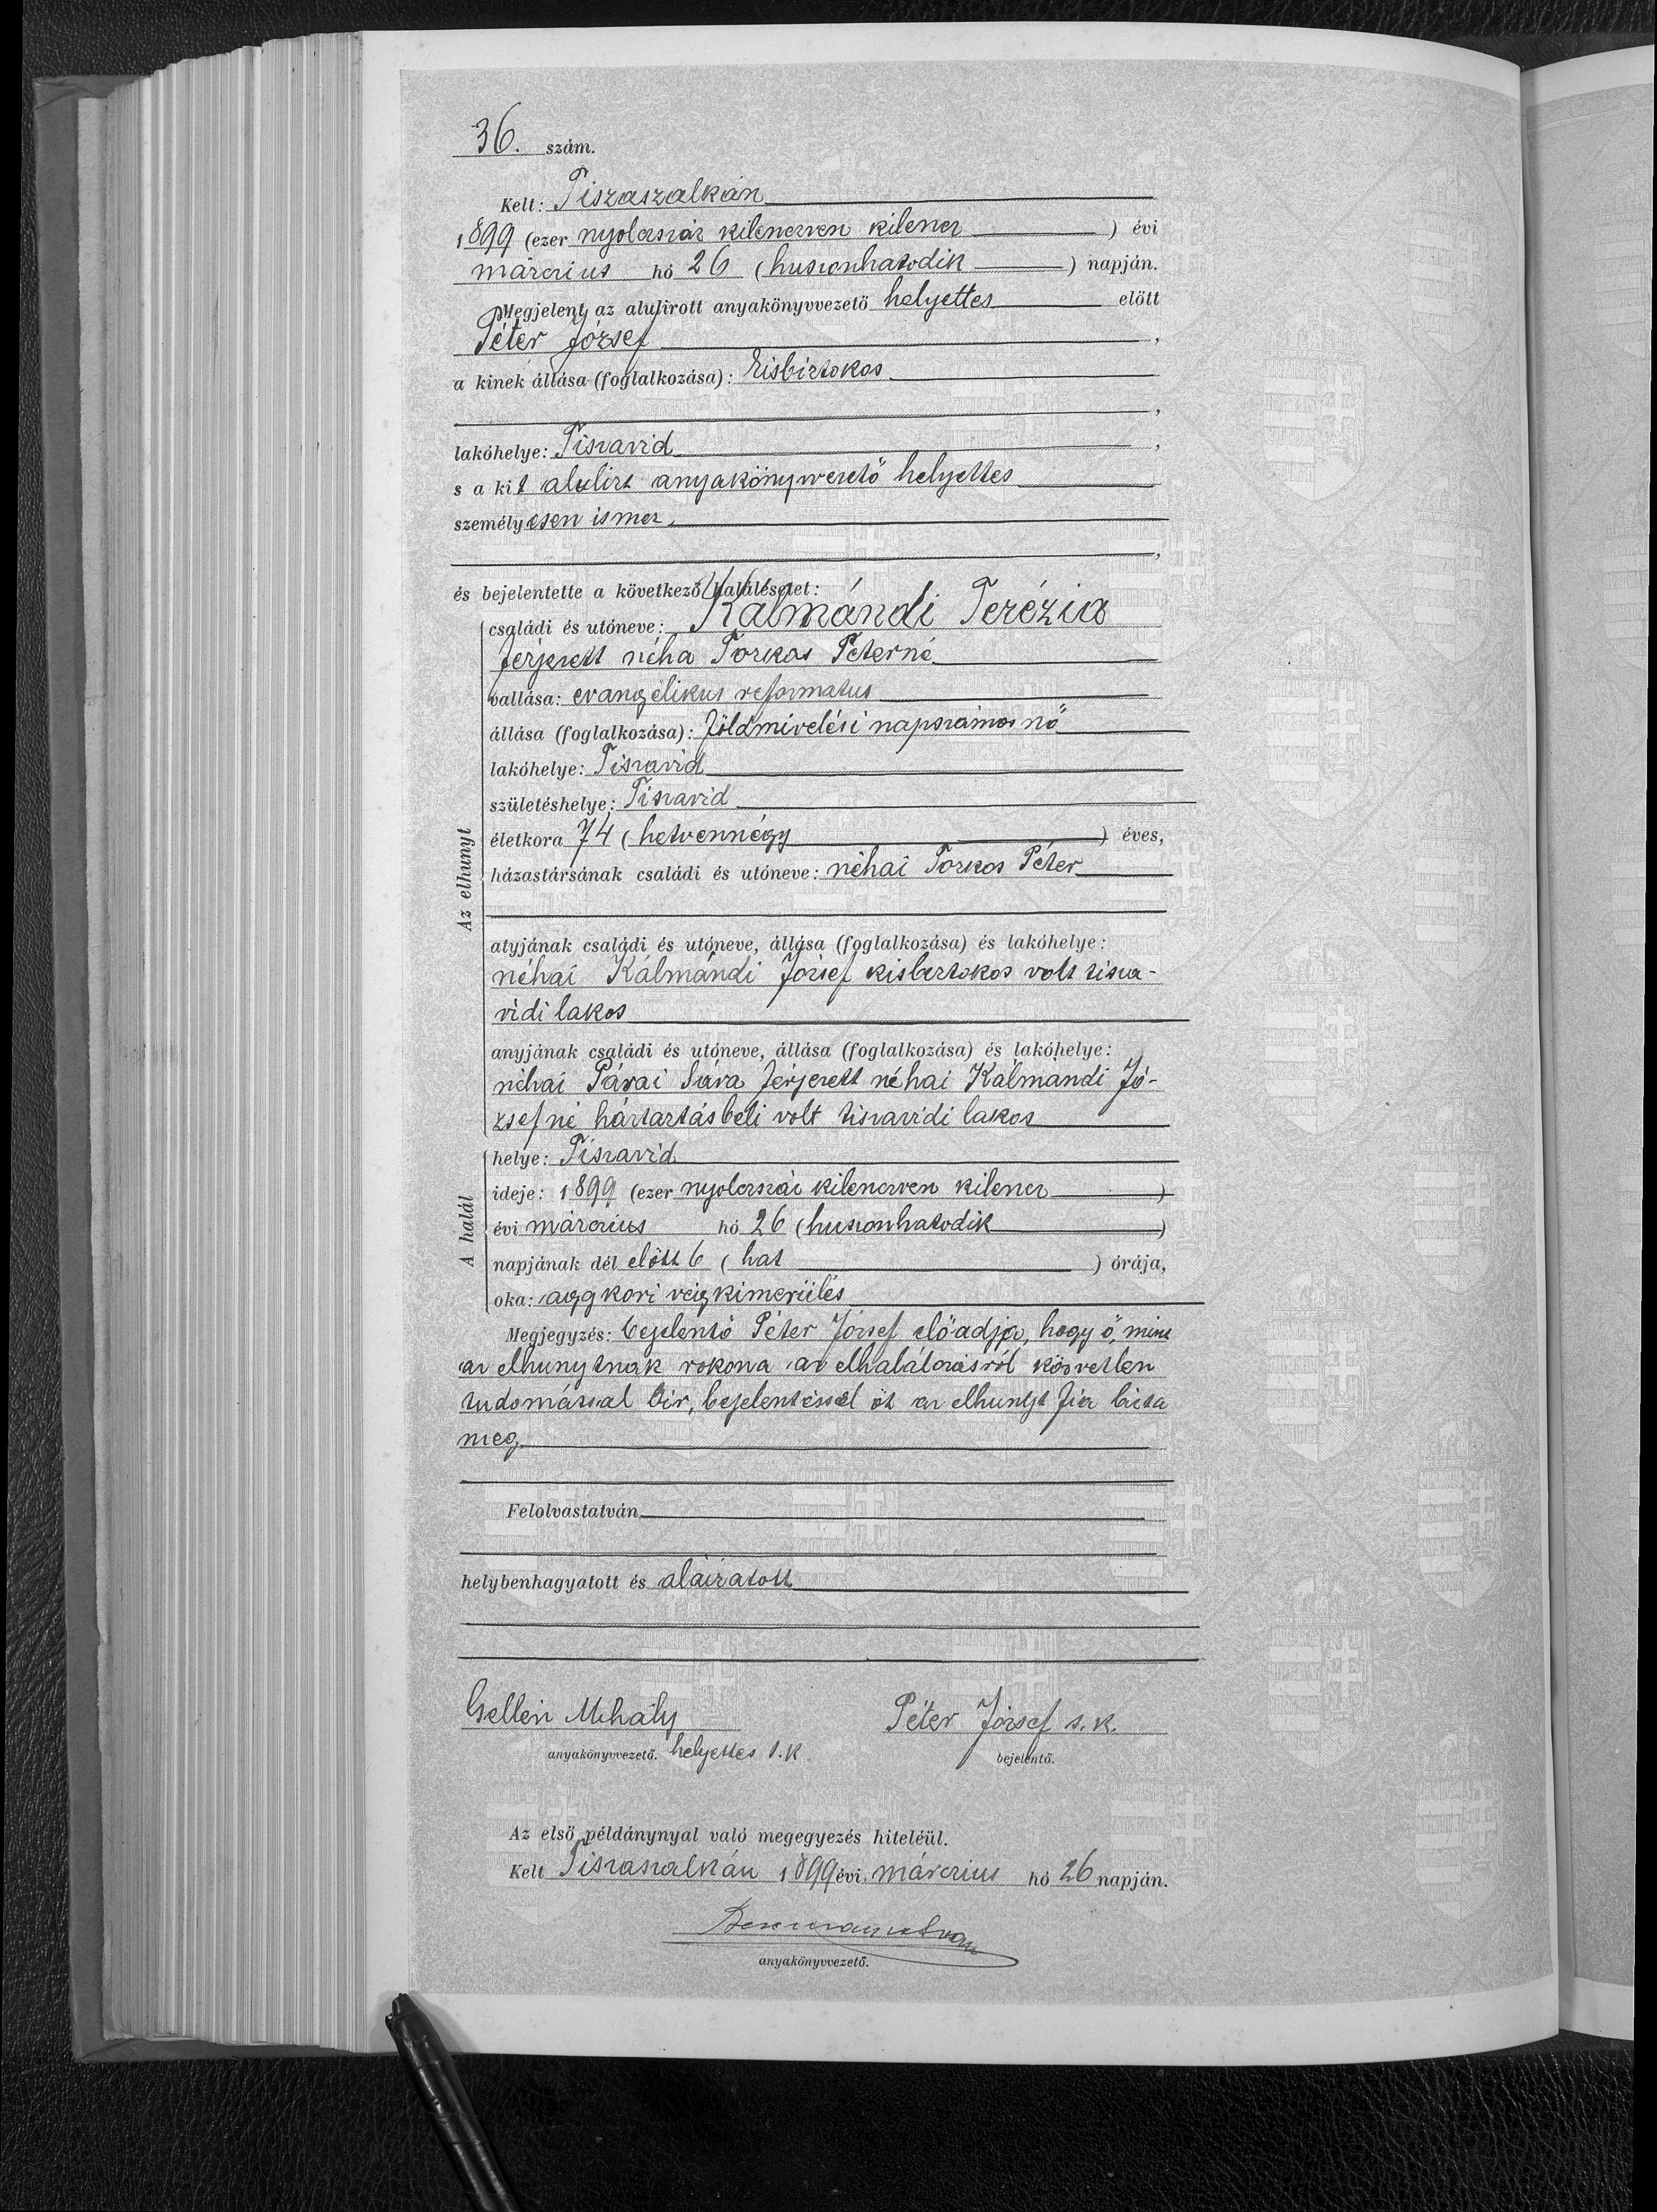 36. szám.
Kelt: Tiszaszalkán
1899 (ezer nyolczszáz kilenczven kilencz) évi
márczius hó 26 (huszonhatodik) napján.
Megjelent az alulirott anyakönyvvezető helyettes előtt
Péter József,
a kinek állása (foglalkozása): kisbirtokos
,
lakóhelye: Tiszavid,
s a kit alulirt anyakönyvvezető helyettes
személyesen ismer,
,
és bejelentette a következő halálesetet:
családi és utóneve: Kálmándi Terézia
férjezett néhai Torkos Péterné
vallása: evangélikus reformatus
állása (foglalkozása): földmivelési napszámos nő
lakóhelye: Tiszavid
születéshelye: Tiszavid
életkora 74 (hetvennégy) éves,
Az elhunyt
házastársának családi és utóneve: néhai Torkos Péter
atyjának családi és utóneve, állása (foglalkozása) és lakóhelye:
néhai Kálmándi József kisbirtokos volt tisza-
vidi lakos
anyjának családi és utóneve, állása (foglalkozása) és lakóhelye:
néhai Sára férjezett néhai Kálmándi Jó-
zsefné háztartásbeli volt tiszavidi lakos
helye: Tiszavid
A halál
ideje: 1899 (ezer nyolczszáz kilenczven kilencz)
évi márczius hó 26 (huszonhatodik)
napjának dél előtt 6 (hat) órája,
oka: aggkori végkimerülés
Megjegyzés: bejelentő Péter József előadja, hogy ő, mint
az elhunytnak rokona az elhalálozásról közvetlen
tudomással bir, bejelentéssel őt az elhunyt fia bizta
meg.
Felolvastatván
helybenhagyatott és aláiratott
Gellén Mihály Péter József s. k.
anyakönyvvezető. helyettes s. k. bejelentő.
Az első példánynyal való megegyezés hiteléül.
Kelt Tiszaszalkán 1899 évi márczius hó 26 napján.
anyakönyvvezető.